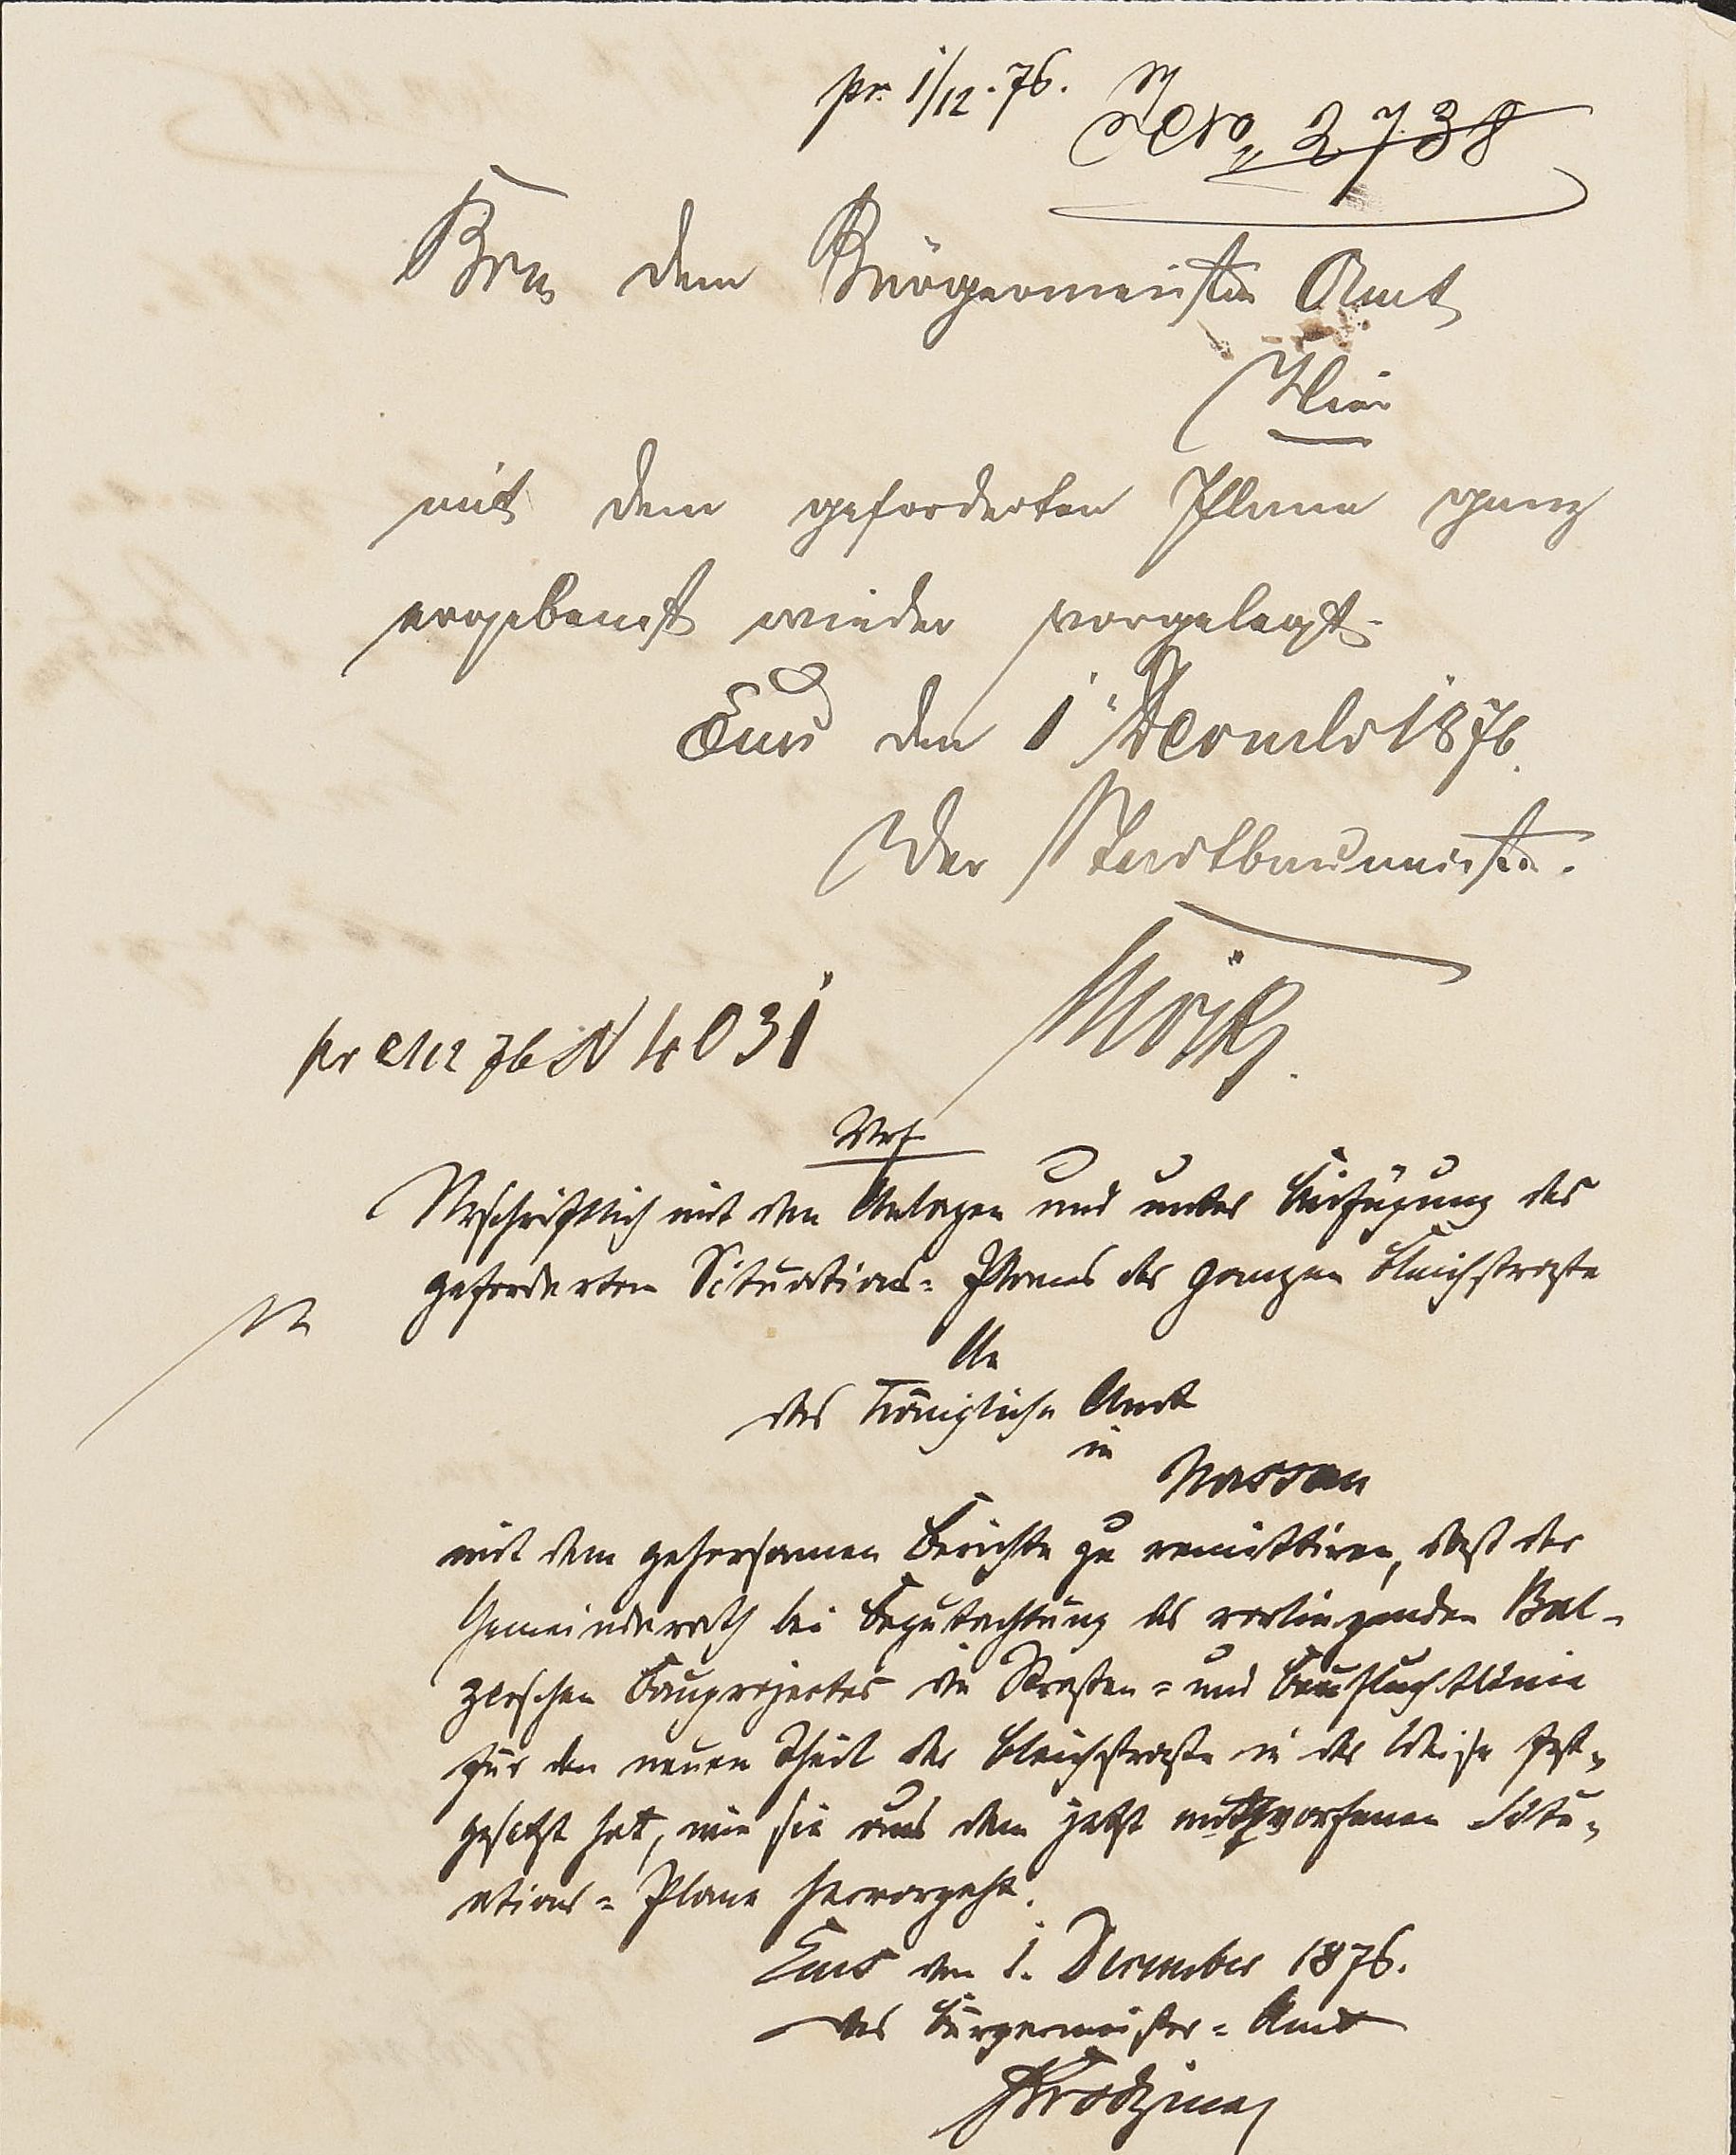 pr. 1/12. 76.
No. 2738
Brm dem Bürgermeister Amt
Hier
mit dem geforderten Plane ganz
ergebenst wieder vorgelegt.
Ems den 1 December 1876.
Der Stadtbaumeister.
pr 2/12 76 N 4031
Urschriftlich mit den Anlagen und unter Beifügung des
geforderten Situations-Planes der ganzen Bleichstraße
An
das Königliche Amt
in
Nassau
mit dem gehorsamen Berichte zu remittiren, daß der
Gemeinderath bei Begutachtung des vorliegenden Bal-
zerschen Bauprojectes die Straßen- und Baufluchtlinie
für den neuen Theil der Bleichstraße in der Weise fest-
gesetzt hat, wie sie aus dem jetzt entworfenen Situ-
ations-Plane hervorgeht.
Ems den 1. December 1876.
Das Bürgermeister-Amt